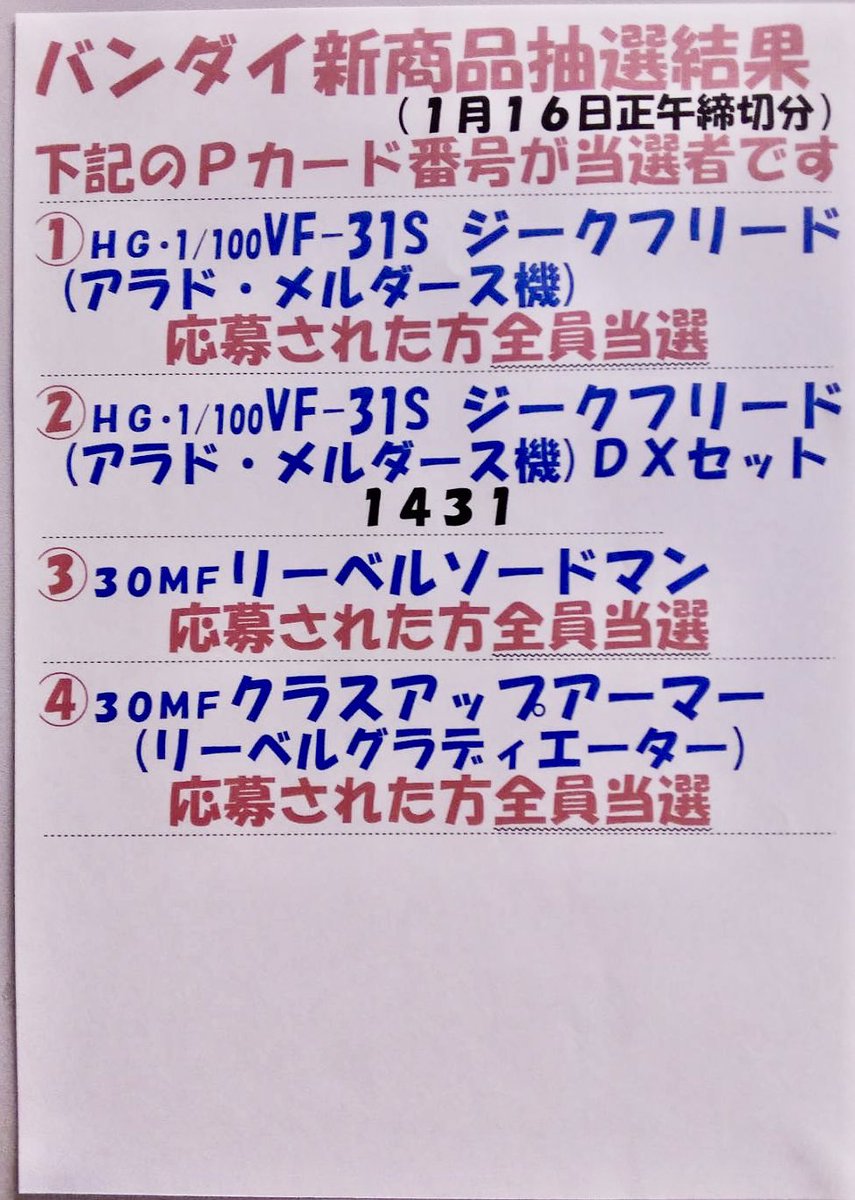 バンダイ新商品抽選結果
（１月１６日正午締切分）
下記のＰカード番号が当選者です
①ＨＧ・1/100VF-31S ジークフリード
(アラド・メルダース機)
応募された方全員当選
②ＨＧ・1/100VF-31S ジークフリード
(アラド・メルダース機)ＤＸセット
１４３１
③３０ＭＦリーベルソードマン
応募された方全員当選
④３０ＭＦクラスアップアーマー
(リーベルグラディエーター)
応募された方全員当選